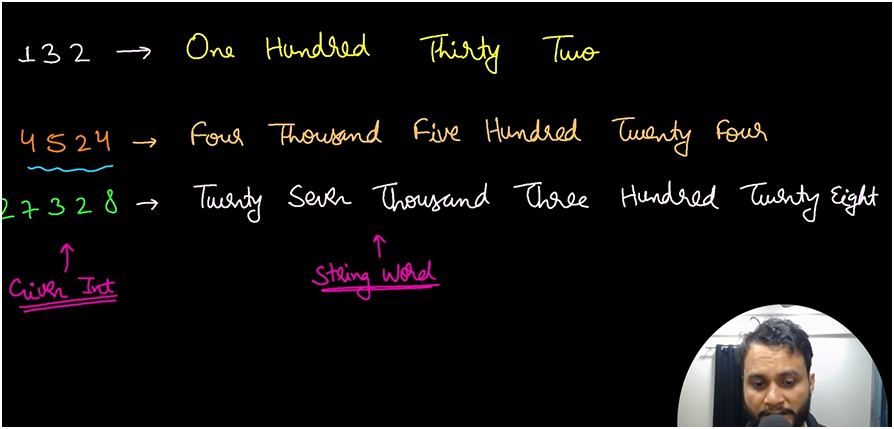 132 → One Hundred Thirty Two
4524 → Four Thousand Five Hundred Twenty Four
27328 → Twenty Seven Thousand Three Hundred Twenty Eight
Given Int
String Word